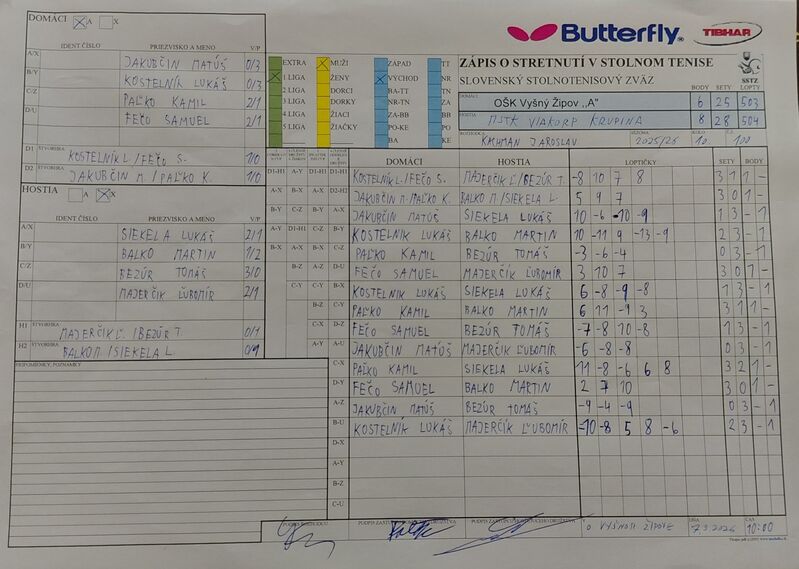 DOMÁCI A X
IDENT.ČÍSLO PRIEZVISKO A MENO V/P
A/X JAKUBČIN MATÚŠ 0/3
B/Y KOSTELNÍK LUKÁŠ 0/3
C/Z PAĽKO KAMIL 2/1
D/U FEČO SAMUEL 2/1
D1 ŠTVORHRA KOSTELNÍK L. / FEČO S. 1/0
D2 ŠTVORHRA JAKUBČIN M. / PAĽKO K. 1/0
HOSTIA A X
IDENT.ČÍSLO PRIEZVISKO A MENO V/P
A/X SIEKELA LUKÁŠ 2/1
B/Y BALKO MARTIN 1/2
C/Z BEZÚR TOMÁŠ 3/0
D/U MAJERČÍK ĽUBOMÍR 2/1
H1 ŠTVORHRA MAJERČÍK Ľ. / BEZÚR T. 0/1
H2 ŠTVORHRA BALKO M / SIEKELA L. 0/1
PRIPOMIENKY, POZNÁMKY
Butterfly
TIBHAR
EXTRA MUŽI ZÁPAD TT
1 LIGA ŽENY VÝCHOD NR
2 LIGA DORCI BA-TT TN
3 LIGA DORKY NR-TN ZA
4 LIGA ŽIACI ZA-BB BB
5 LIGA ŽIAČKY PO-KE PO
BA KE
ZÁPIS O STRETNUTÍ V STOLNOM TENISE
SLOVENSKÝ STOLNOTENISOVÝ ZVÄZ
SSTZ
BODY SETY LOPTY
DOMÁCI OŠK Vyšný Žipov ,,A" 6 25 503
HOSTIA MSTK VIAKORP KRUPINA 8 28 504
ROZHODCA KACHMAN JAROSLAV SEZÓNA 2025/26 KOLO 10. Č.Z. 100
DOMÁCI HOSTIA LOPTIČKY SETY BODY
D1-H1 A-Y D1-H1 A-X KOSTELNÍK L. / FEČO S. MAJERČÍK Ľ / BEZÚR T. -8 10 7 8 3 1 1 -
A-X D-X A-X D2-H2 JAKUBČIN M. / PAĽKO K. BALKO M / SIEKELA L. 5 9 7
B-Y C-Z B-Y A-X JAKUBČIN MATÚŠ SIEKELA LUKÁŠ 10 -6 -10 -9 1 3 - 1
A-Y D1-H1 C-Z B-Y KOSTELNÍK LUKÁŠ BALKO MARTIN 10 -11 9 -13 -9 2 3 - 1
B-X A-X B-X C-Z PAĽKO KAMIL BEZÚR TOMÁŠ -3 -6 -4 0 3 - 1
B-Z A-Z D-U FEČO SAMUEL MAJERČÍK ĽUBOMÍR 3 10 7 3 0 1 -
C-Y C-Y B-X KOSTELNÍK LUKÁŠ SIEKELA LUKÁŠ 6 -8 -9 -8 1 3 - 1
B-Z C-Y PAĽKO KAMIL BALKO MARTIN 6 11 -9 3 3 1 1 -
C-X D-Z FEČO SAMUEL BEZÚR TOMÁŠ -7 -8 10 -8 1 3 - 1
A-Y A-U JAKUBČIN MATÚŠ MAJERČÍK ĽUBOMÍR -6 -8 -8 0 3 - 1
C-X PAĽKO KAMIL SIEKELA LUKÁŠ 11 -8 -6 6 8 3 2 1 -
D-Y FEČO SAMUEL BALKO MARTIN 2 7 10 3 0 1 -
A-Z JAKUBČIN MATÚŠ BEZÚR TOMÁŠ -9 -4 -9 0 3 - 1
B-U KOSTELNÍK LUKÁŠ MAJERČÍK ĽUBOMÍR -10 -8 5 8 -6 2 3 - 1
D-X
A-Y
B-Z
C-U
PODPIS ROZHODCU
V VYŠNOM ŽIPOVE DŇA 7.3.2026 ČAS 10:00